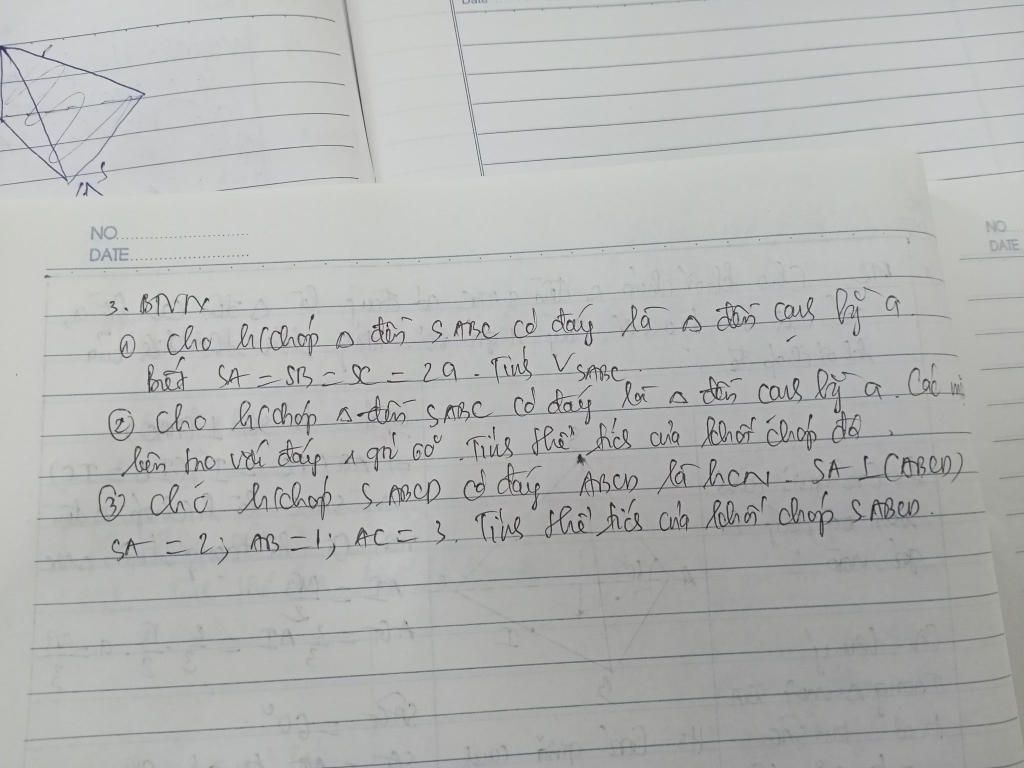 Date
NO
DATE
NO
DATE
3. BTVN
① Cho h/chóp △ đều SABC có đáy là △ đều cạnh bằng a.
Biết SA = SB = SC = 2a. Tính V SABC
② Cho h/chóp △ đều SABC có đáy là △ đều cạnh bằng a. Các
bên tạo với đáy 1 góc 60°. Tính thể tích của khối chóp đó.
③ Cho h/chóp S.ABCD có đáy ABCD là hCN. SA ⊥ (ABCD)
SA = 2; AB = 1; AC = 3. Tính thể tích của khối chóp SABCD.